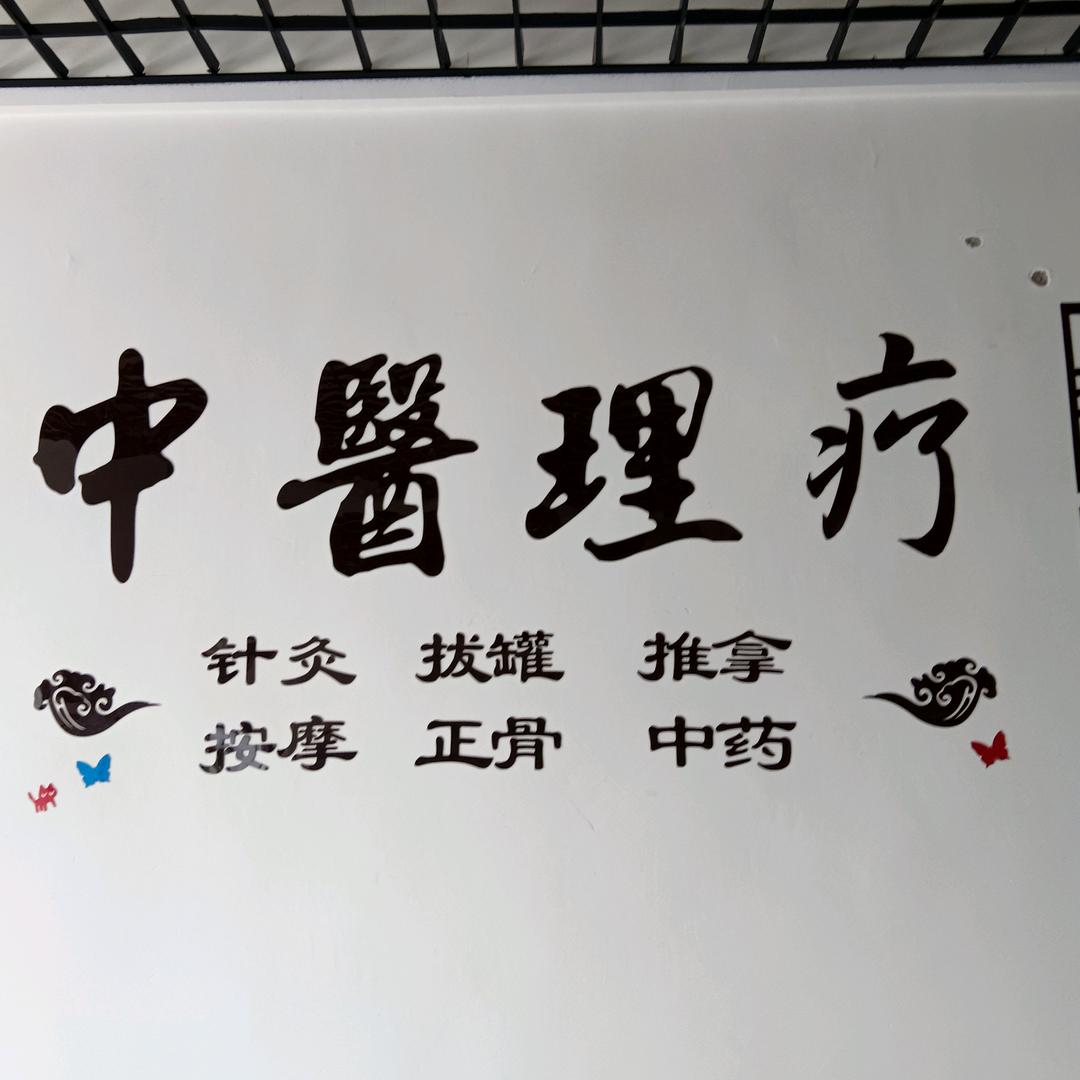 中醫理疗
针灸 拔罐 推拿
按摩 正骨 中药